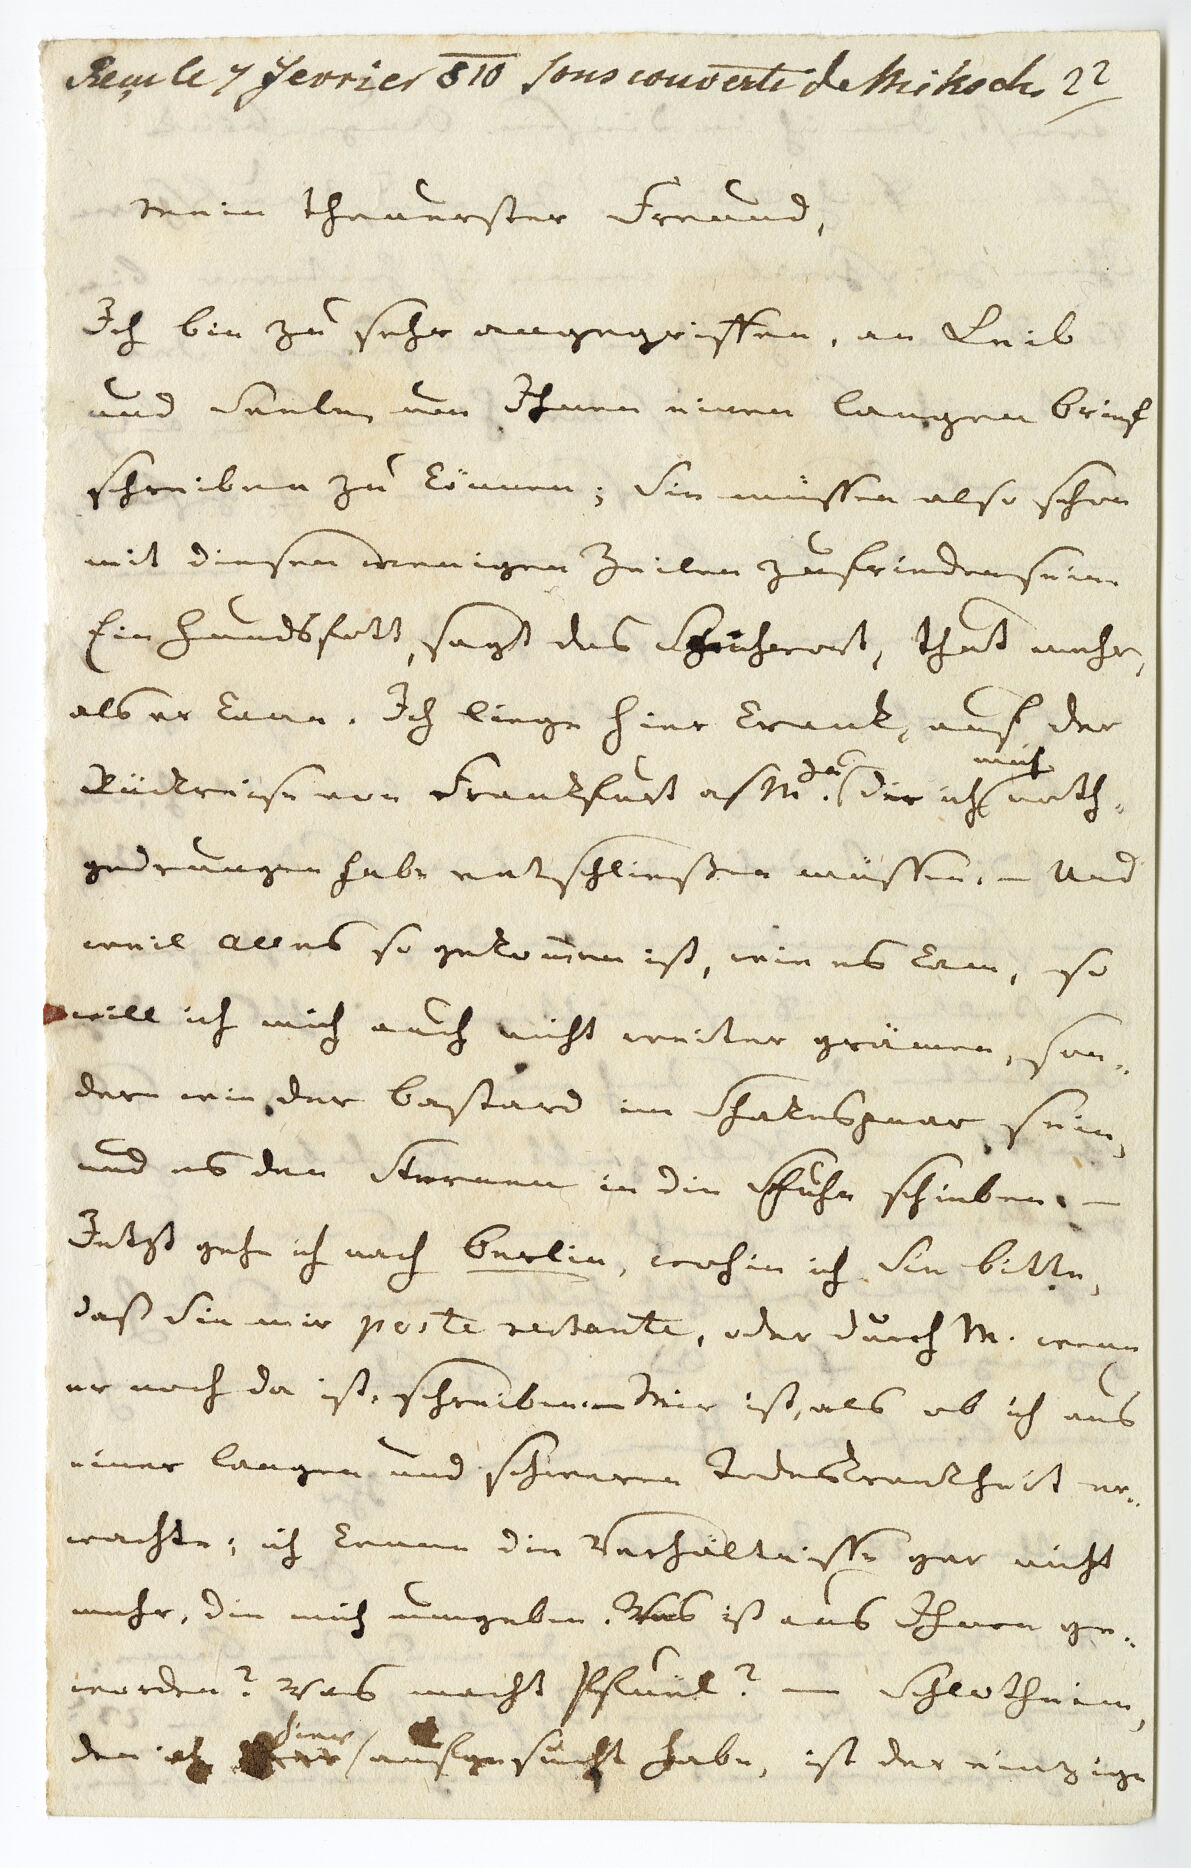 Reçu le 7 fevrier 810 sous couverte de Mikoch. 22
mein theuerster Freund,
Ich bin zu sehr angegriffen, an Leib
und Seele, um Ihnen einen langen brief
schreiben zu können; Sie müssen also schon
mit diesen wenigen Zeilen zufrieden sein.
Ein Hundsfott, sagt das Sprichwort, that mehr,
als er kann. Ich liege hier krank, auf der
Rückreise von Frankfurt a/M. (zu der ich mich noth-
gedrungen habe entschließen müssen. – Und
weil Alles so gekom̄en ist, wie es kam, so
will ich mich auch nicht weiter grämen, son-
dern wie der bastard im Shakespear sein,
und es den Sternen in die Schuhe schieben. –
Jetzt gehe ich nach berlin, wohin ich Sie bitte,
daß Sie mir poste restante, oder durch M. wenn
er noch da ist, schreiben. – Mir ist, als ob ich aus
einer langen und schweren Todeskrankheit er-
wachte; ich kenne die Verhältnisse gar nicht
mehr, die mich umgeben. Was ist aus Ihnen ge-
worden? Was macht Pfuël? – Schlotheim,
den ich hier aufgesucht habe, ist der einzige